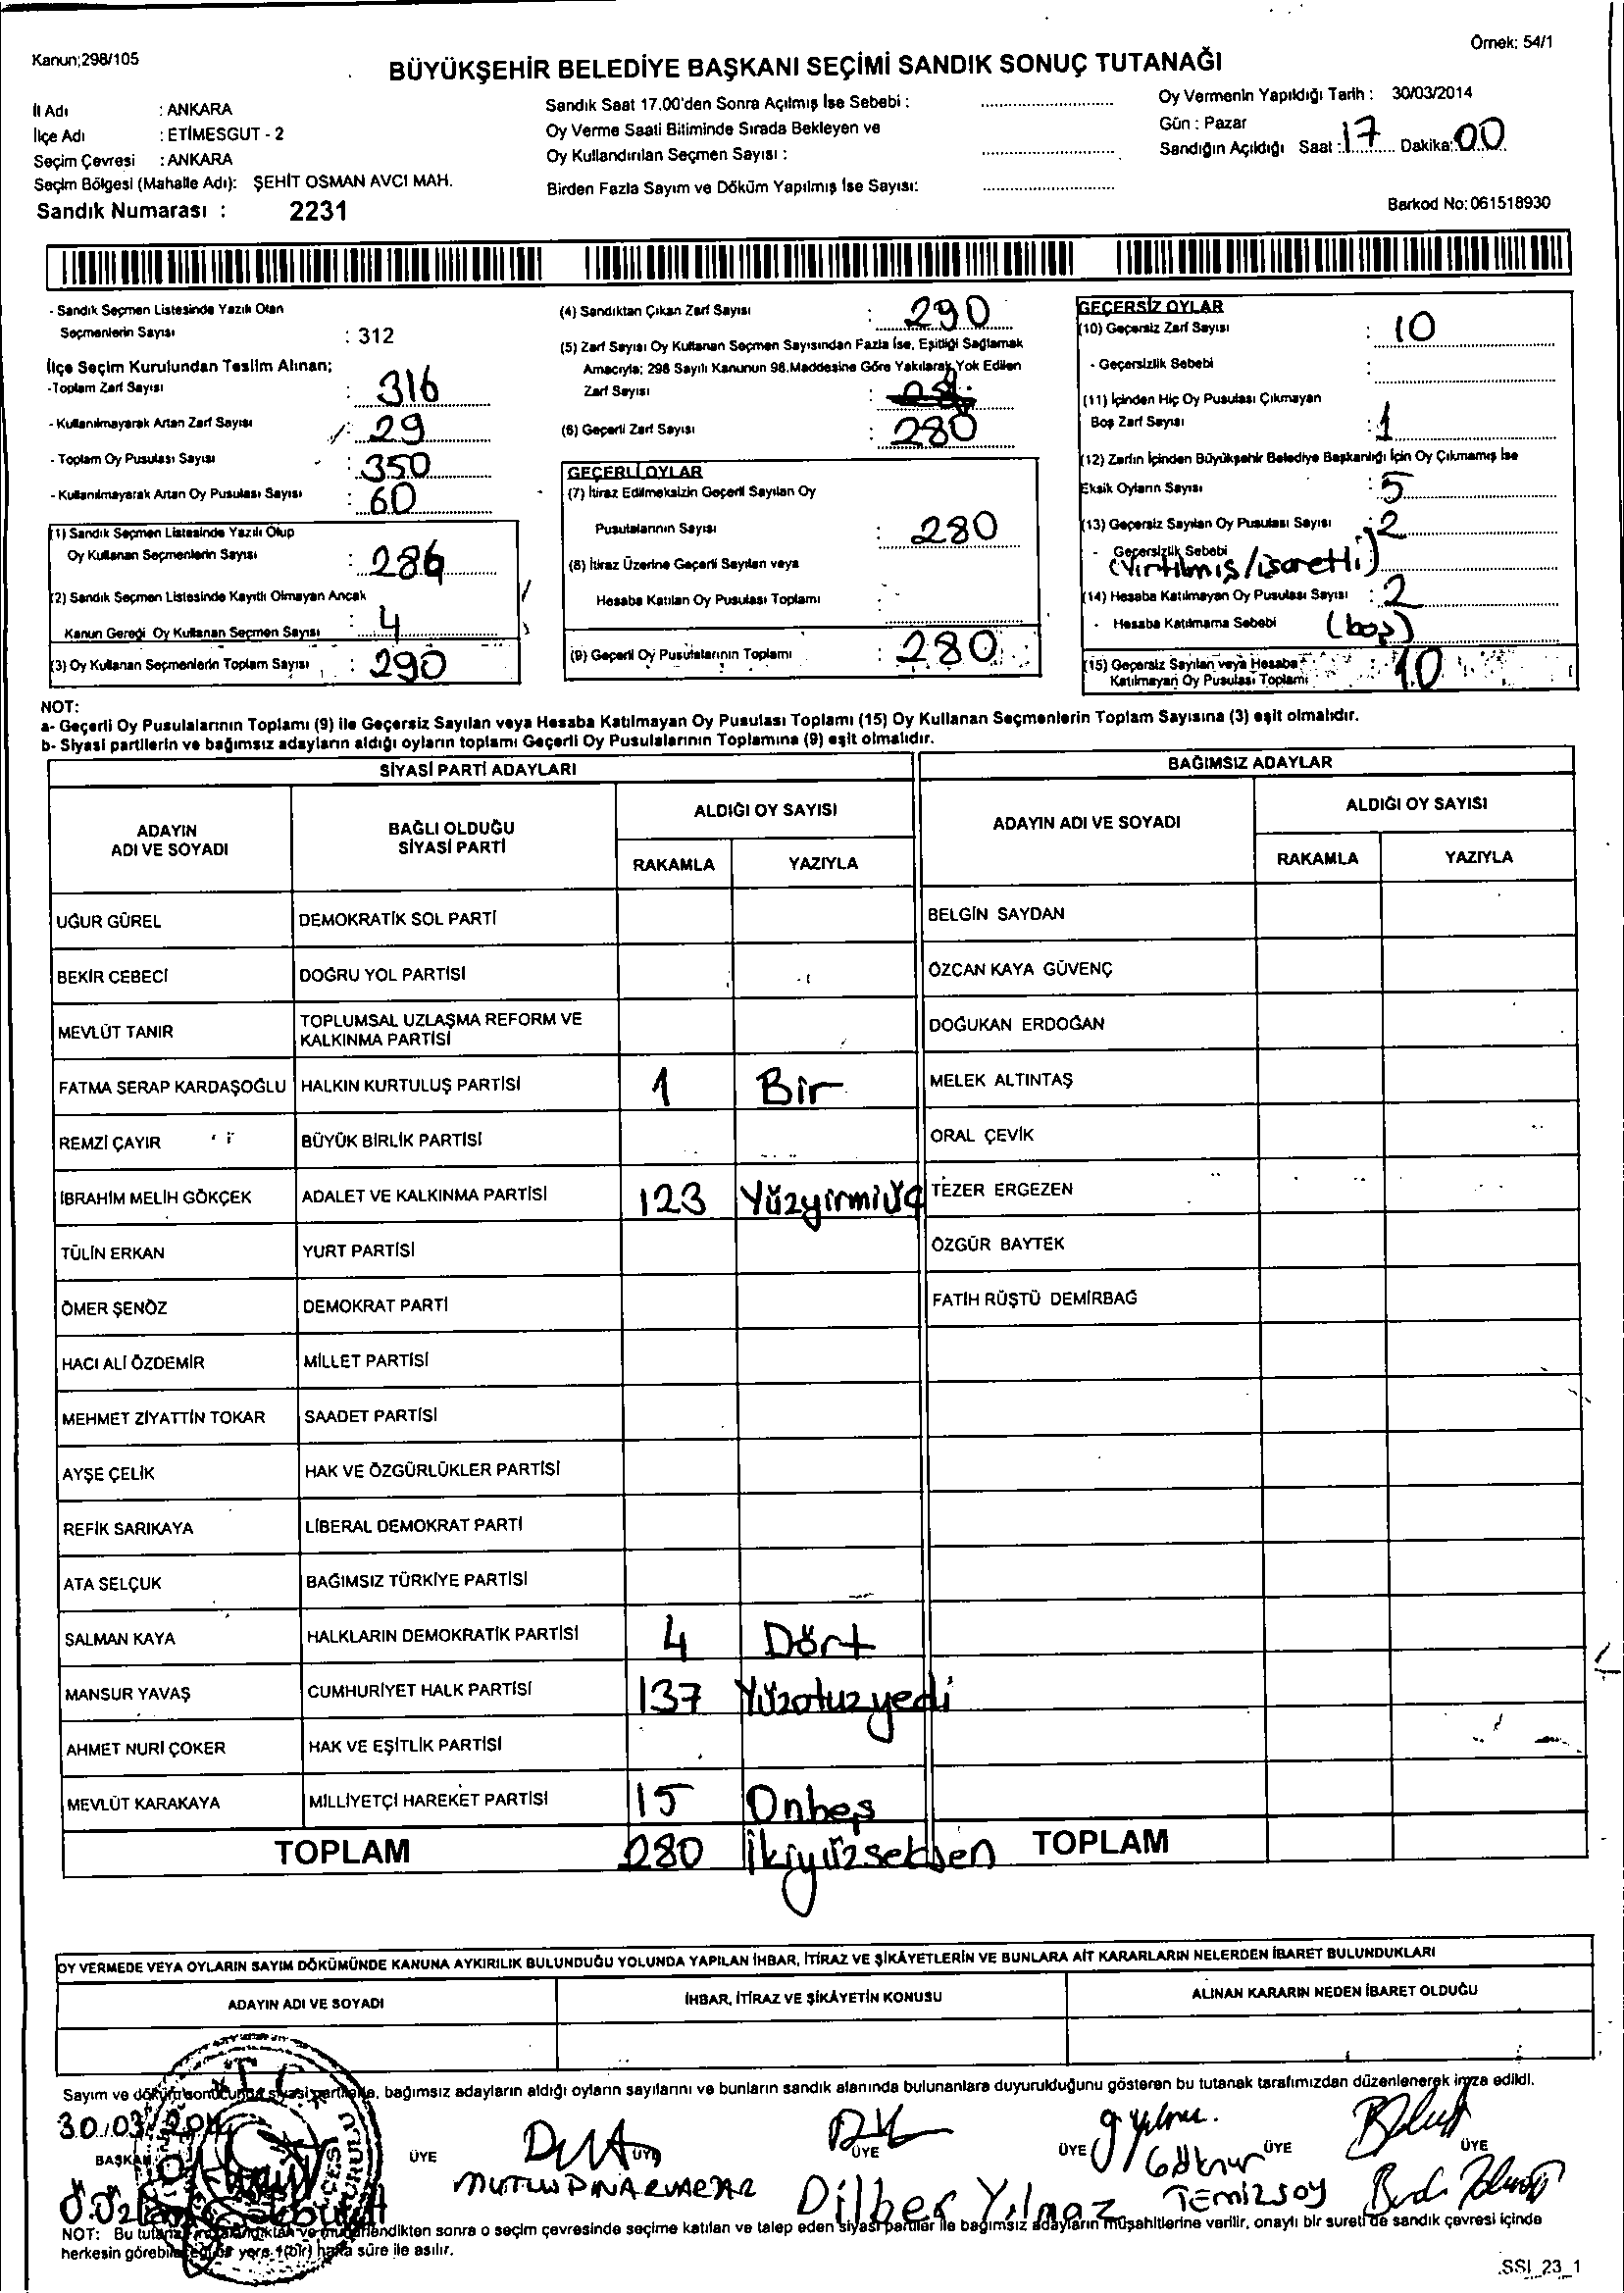 Kanun;298/105
Örnek: 54/1
BÜYÜKŞEHİR BELEDİYE BAŞKANI SEÇİMİ SANDIK SONUÇ TUTANAĞI
İl Adı : ANKARA
İlçe Adı : ETİMESGUT - 2
Seçim Çevresi : ANKARA
Seçim Bölgesi (Mahalle Adı): ŞEHİT OSMAN AVCI MAH.
Sandık Numarası : 2231
Sandık Saat 17.00'den Sonra Açılmış İse Sebebi :
Oy Verme Saati Bitiminde Sırada Bekleyen ve
Oy Kullandırılan Seçmen Sayısı :
Birden Fazla Sayım ve Döküm Yapılmış İse Sayısı:
Oy Vermenin Yapıldığı Tarih : 30/03/2014
Gün : Pazar
Sandığın Açıldığı Saat : 17 Dakika: 00
Barkod No: 061518930
- Sandık Seçmen Listesinde Yazılı Olan
Seçmenlerin Sayısı : 312
İlçe Seçim Kurulundan Teslim Alınan;
-Toplam Zarf Sayısı : 316
- Kullanılmayarak Artan Zarf Sayısı : 29
- Toplam Oy Pusulası Sayısı : 350
- Kullanılmayarak Artan Oy Pusulası Sayısı : 60
(1) Sandık Seçmen Listesinde Yazılı Olup
Oy Kullanan Seçmenlerin Sayısı : 286
(2) Sandık Seçmen Listesinde Kayıtlı Olmayan Ancak
Kanun Gereği Oy Kullanan Seçmen Sayısı : 4
(3) Oy Kullanan Seçmenlerin Toplam Sayısı : 290
(4) Sandıktan Çıkan Zarf Sayısı : 290
(5) Zarf Sayısı Oy Kullanan Seçmen Sayısından Fazla İse, Eşitliği Sağlamak
Amacıyla; 298 Sayılı Kanunun 98.Maddesine Göre Yakılarak Yok Edilen
Zarf Sayısı :
(6) Geçerli Zarf Sayısı : 280
GEÇERLİ OYLAR
(7) İtiraz Edilmeksizin Geçerli Sayılan Oy
Pusulalarının Sayısı : 280
(8) İtiraz Üzerine Geçerli Sayılan veya
Hesaba Katılan Oy Pusulası Toplamı :
(9) Geçerli Oy Pusulalarının Toplamı : 280
GEÇERSİZ OYLAR
(10) Geçersiz Zarf Sayısı : 10
- Geçersizlik Sebebi :
(11) İçinden Hiç Oy Pusulası Çıkmayan
Boş Zarf Sayısı : 1
(12) Zarfın İçinden Büyükşehir Belediye Başkanlığı İçin Oy Çıkmamış İse
Eksik Oyların Sayısı : 5
(13) Geçersiz Sayılan Oy Pusulası Sayısı : 2
- Geçersizlik Sebebi
(Yırtılmış/işaretli)
(14) Hesaba Katılmayan Oy Pusulası Sayısı : 2
- Hesaba Katılmama Sebebi (boş)
(15) Geçersiz Sayılan veya Hesaba
Katılmayan Oy Pusulası Toplamı : 10
NOT:
a- Geçerli Oy Pusulalarının Toplamı (9) ile Geçersiz Sayılan veya Hesaba Katılmayan Oy Pusulası Toplamı (15) Oy Kullanan Seçmenlerin Toplam Sayısına (3) eşit olmalıdır.
b- Siyasi partilerin ve bağımsız adayların aldığı oyların toplamı Geçerli Oy Pusulalarının Toplamına (9) eşit olmalıdır.
SİYASİ PARTİ ADAYLARI
BAĞIMSIZ ADAYLAR
ADAYIN ADI VE SOYADI
BAĞLI OLDUĞU SİYASİ PARTİ
ALDIĞI OY SAYISI
RAKAMLA YAZIYLA
ADAYIN ADI VE SOYADI
ALDIĞI OY SAYISI
RAKAMLA YAZIYLA
UĞUR GÜREL DEMOKRATİK SOL PARTİ BELGİN SAYDAN
BEKİR CEBECİ DOĞRU YOL PARTİSİ ÖZCAN KAYA GÜVENÇ
MEVLÜT TANIR TOPLUMSAL UZLAŞMA REFORM VE KALKINMA PARTİSİ DOĞUKAN ERDOĞAN
FATMA SERAP KARDAŞOĞLU HALKIN KURTULUŞ PARTİSİ 1 Bir MELEK ALTINTAŞ
REMZİ ÇAYIR BÜYÜK BİRLİK PARTİSİ ORAL ÇEVİK
İBRAHİM MELİH GÖKÇEK ADALET VE KALKINMA PARTİSİ 123 Yüzyirmiüç TEZER ERGEZEN
TÜLİN ERKAN YURT PARTİSİ ÖZGÜR BAYTEK
ÖMER ŞENÖZ DEMOKRAT PARTİ FATİH RÜŞTÜ DEMİRBAĞ
HACI ALİ ÖZDEMİR MİLLET PARTİSİ
MEHMET ZİYATTİN TOKAR SAADET PARTİSİ
AYŞE ÇELİK HAK VE ÖZGÜRLÜKLER PARTİSİ
REFİK SARIKAYA LİBERAL DEMOKRAT PARTİ
ATA SELÇUK BAĞIMSIZ TÜRKİYE PARTİSİ
SALMAN KAYA HALKLARIN DEMOKRATİK PARTİSİ 4 Dört
MANSUR YAVAŞ CUMHURİYET HALK PARTİSİ 137 Yüzotuzyedi
AHMET NURİ ÇOKER HAK VE EŞİTLİK PARTİSİ
MEVLÜT KARAKAYA MİLLİYETÇİ HAREKET PARTİSİ 15 Onbeş
TOPLAM 280 İkiyüzseksen TOPLAM
OY VERMEDE VEYA OYLARIN SAYIM DÖKÜMÜNDE KANUNA AYKIRILIK BULUNDUĞU YOLUNDA YAPILAN İHBAR, İTİRAZ VE ŞİKÂYETLERİN VE BUNLARA AİT KARARLARIN NELERDEN İBARET BULUNDUKLARI
ADAYIN ADI VE SOYADI İHBAR, İTİRAZ VE ŞİKÂYETİN KONUSU ALINAN KARARIN NEDEN İBARET OLDUĞU
Sayım ve dökümü sonucunda siyasi partilerle, bağımsız adayların aldığı oyların sayılarını ve bunların sandık alanında bulunanlara duyurulduğunu gösteren bu tutanak tarafımızdan düzenlenerek imza edildi.
30/03/2014
BAŞKAN ÜYE ÜYE ÜYE ÜYE ÜYE ÜYE
MUTLU PINAR Dilber Yılmaz Göknur TEMİZSOY
NOT: Bu tutanak sonra o seçim çevresinde seçime katılan ve talep eden siyasi partiler ile bağımsız adayların müşahitlerine verilir, onaylı bir sureti de sandık çevresi içinde
herkesin görebileceği bir yere 1(bir) hafta süre ile asılır.
SSI_23_1